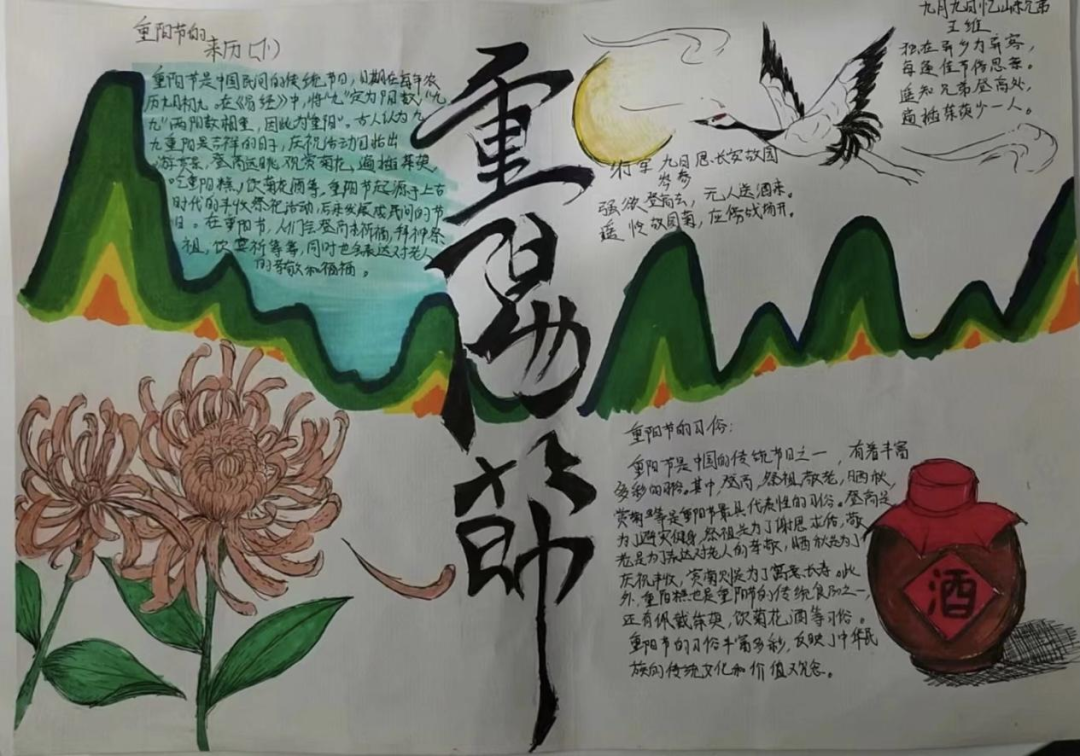 重阳节的
来历(小)
重阳节是中国民间的传统节日，日期在每年农
历九月初九。在《易经》中，将“九”定为阳数，“九
九”两阳数相重，因此为“重阳”。古人认为九
九重阳是吉祥的日子，庆祝活动包括出
游赏景、登高远眺、观赏菊花、遍插茱萸、
吃重阳糕、饮菊花酒等。重阳节起源于上古
时代的丰收祭祀活动，后来发展成民间的节
日。在重阳节，人们会登高去祈福，拜神祭
祖，饮宴祈等等，同时也会表达对老人
的尊敬和祝福。
重陽節
九月九日忆山东兄弟
王维
独在异乡为异客，
每逢佳节倍思亲。
遥知兄弟登高处，
遍插茱萸少一人。
行军九日思长安故园
岑参
强欲登高去，无人送酒来。
遥怜故园菊，应傍战场开。
重阳节的习俗：
重阳节是中国的传统节日之一，有着丰富
多彩的习俗。其中，登高，祭祖，敬老，晒秋，
赏菊等是重阳节最具代表性的习俗。登高是
为了避灾健身，祭祖是为了谢恩求佑，敬
老是为了表达对老人的孝敬，晒秋是为了
庆祝丰收，赏菊则是为了寓意长寿。此
外，重阳糕也是重阳节的传统食品之一，
还有佩戴茱萸，饮菊花酒等习俗。
重阳节的习俗丰富多彩，反映了中华民
族的传统文化和价值观念。
酒